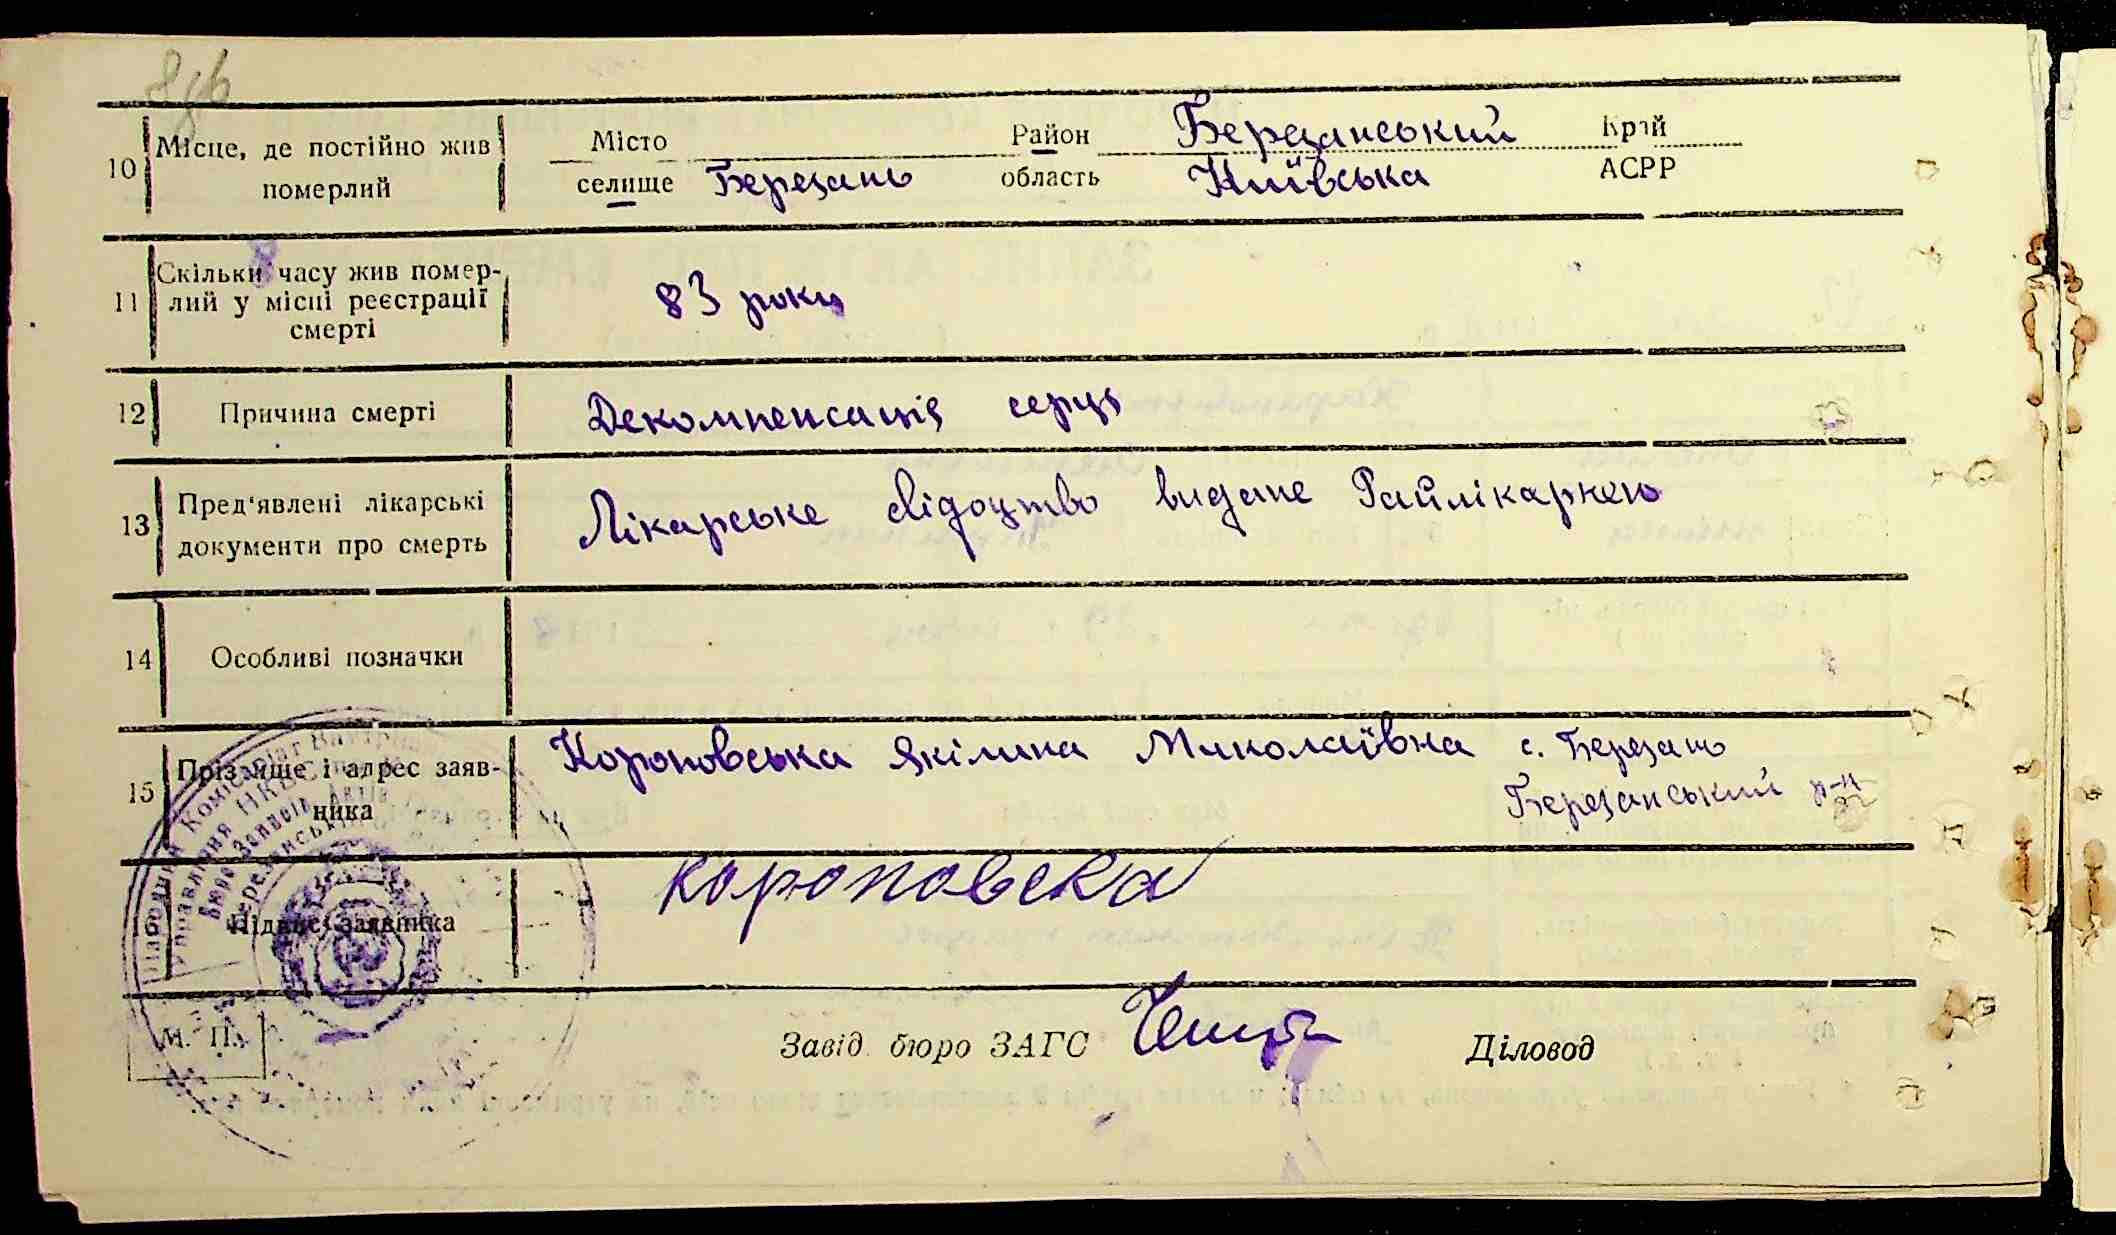 10 Місце, де постійно жив померлий
Місто
селище Березань
Район Березанський
область Київська
Край
АСРР
11 Скільки часу жив помер-
лий у місці реєстрації
смерті
83 роки
12 Причина смерті
Декомпенсація серця
13 Пред'явлені лікарські
документи про смерть
Лікарське свідоцтво видане Райлікарнею
14 Особливі позначки
15 Прізвище і адрес заяв-
ника
Короповська Якілина Миколаївна с. Березань
Березанський р-н
16 Підпис заявника
короповска
М. П.
Завід. бюро ЗАГС
Діловод